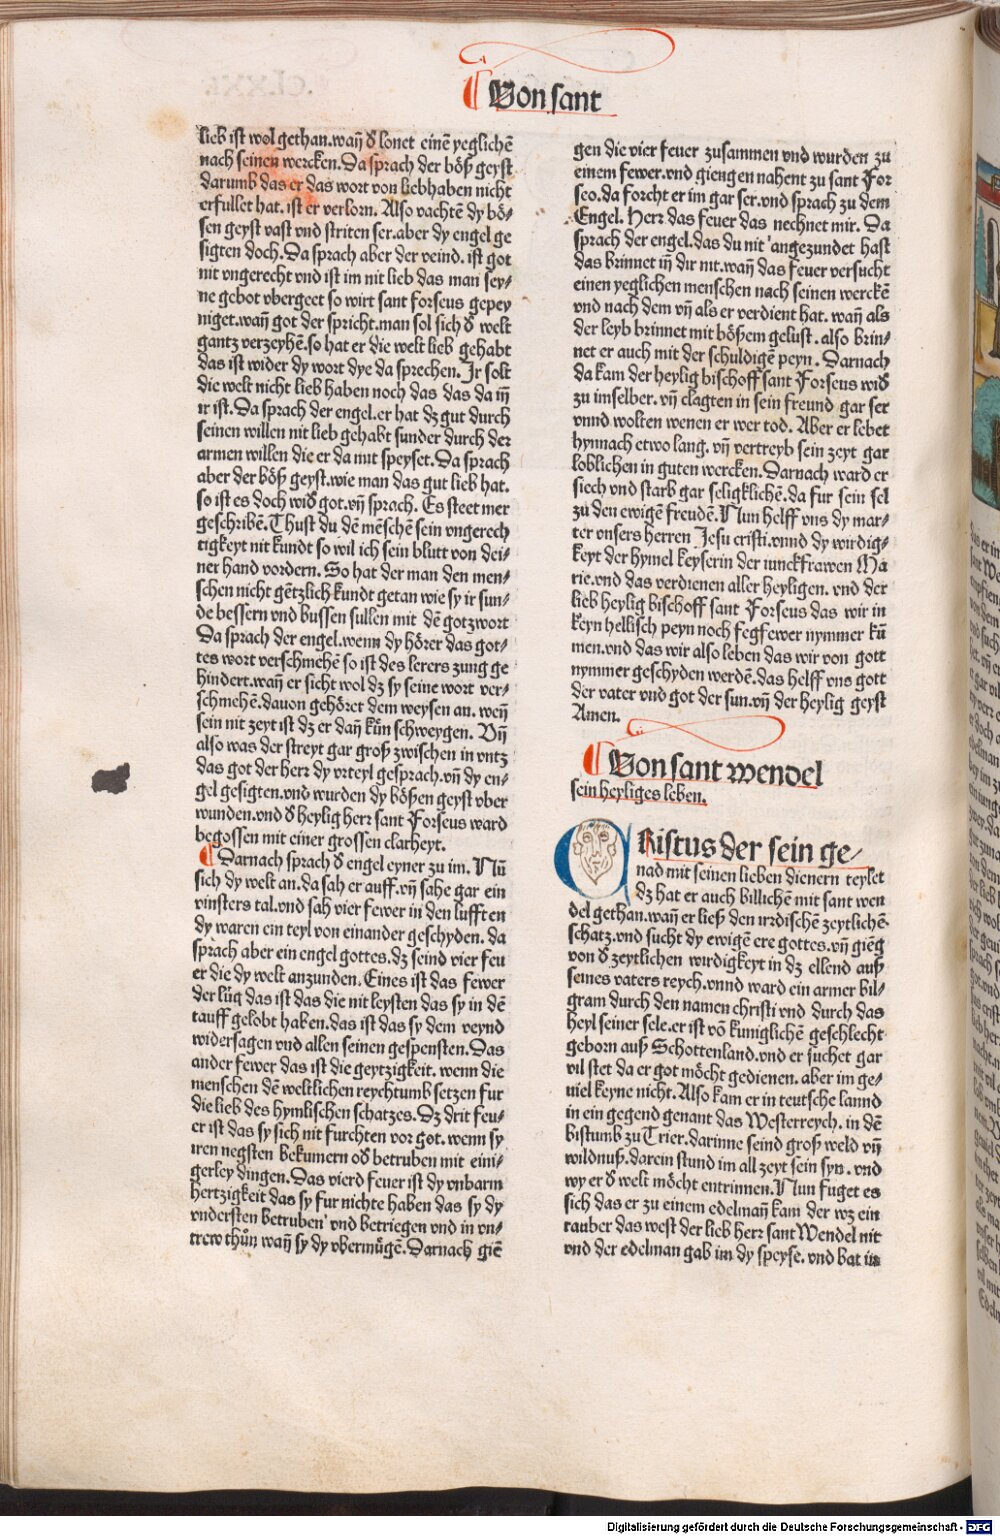 Von sant
lieb ist wol gethan.wañ ð lonet einē yeglichē
nach seinen wercken. Da sprach der böß geyst
darumb das er das wort von liebhaben nicht
erfullet hat. ist er verlorn. Also vachtē dy bö⸗
sen geyst vast vnd striten ser.aber dy engel ge
sigten doch. Da sprach aber der veind. ist got
nit vngerecht vnd ist im nit lieb das man sey⸗
ne gebot vbergeet so wirt sant Forseus gepey
niget.wañ got der spricht.man sol sich ð welt
gantz verzeyhē.so hat er die welt lieb gehabt
das ist wider dy wort dye da sprechen. Ir solt
die welt nicht lieb haben noch das das da iñ
ir ist. Da sprach der engel.er hat dz gut durch
seinen willen nit lieb gehabt sunder durch der
armen willen die er da mit speyset. Da sprach
aber der böß geyst.wie man das gut lieb hat.
so ist es doch wið got.vñ sprach. Es steet mer
geschribē. Thust du dē mēschē sein vngerech
tigkeyt nit kundt so wil ich sein blutt von dei⸗
ner hand vordern. So hat der man den men⸗
schen nicht gētzlich kundt getan wie sy ir sun⸗
de bessern vnd bussen sullen mit dē gotzwort
Da sprach der engel.wenn dy hörer das got⸗
tes wort verschmehē so ist des lerers zung ge
hindert.wañ er sicht wol dz sy seine wort ver⸗
schmehē.dauon gehöret dem weysen an. weñ
sein nit zeyt ist dz er dañ kün schweygen. Vñ
also was der streyt gar groß zwischen in vntz
das got der herr dy vrteyl gesprach.vñ dy en⸗
gel gesigten.vnd wurden dy bößen geyst vber
wunden.vnd ð heylig herr sant Forseus ward
begossen mit einer grossen clarheyt.
Darnach sprach ð engel eyner zu im. Nū
sich dy welt an.da sah er auff.vñ sahe gar ein
vinsters tal.vnd sah vier fewer in den lufften
dy waren ein teyl von einander geschyden. da
sprach aber ein engel gottes.dz seind vier feu
er die dy welt anzunden. Eines ist das fewer
der lüg das ist das die nit leysten das sy in dē
tauff gelobt haben.das ist das sy dem veynd
widersagen vnd allen seinen gespensten. Das
ander fewer das ist die geytzigkeit. wenn die
menschen dē weltlichen reychtumb setzen fur
die lieb des hymlischen schatzes. Dz drit feu⸗
er ist das sy sich nit furchten vor got. wenn sy
iren negsten bekumern oð betruben mit eini⸗
gerley dingen. Das vierd feuer ist dy vnbarm
hertzigkeit das sy fur nichte haben das sy dy
vndersten betruben vnd betriegen vnd in vn⸗
trew thůn wañ sy dy vbermügē. Darnach giē
gen die vier feuer zusammen vnd wurden zu
einem fewer.vnd giengen nahent zu sant For
seo.da forcht er im gar ser.vnd sprach zu dem
Engel. Herr das feuer das nechnet mir. Da
sprach der engel.das du nit angezundet hast
das brinnet iñ dir nit.wañ das feuer versucht
einen yeglichen menschen nach seinen werckē
vnd nach dem vñ als er verdient hat. wañ als
der leyb brinnet mit bößem gelust. also brin⸗
net er auch mit der schuldigē peyn. Darnach
da kam der heylig bischoff sant Forseus wið
zu imselber. vñ clagten in sein freund gar ser
vnnd wolten wenen er wer tod. Aber er lebet
hynnach etwo lang. vñ vertreyb sein zeyt gar
loblichen in guten wercken. Darnach ward er
siech vnd starb gar seligklichē.da fur sein sel
zu den ewigē freudē. Nun helff vns dy mar⸗
ter vnsers herren Jesu cristi.vnnd dy wirdig⸗
keyt der hymel keyserin der iunckfrawen Ma
rie.vnd das verdienen aller heyligen. vnd der
lieb heylig bischoff sant Forseus das wir in
keyn hellisch peyn noch fegfewer nymmer kū
men.vnd das wir also leben das wir von gott
nymmer geschyden werdē.das helff vns gott
der vater vnd got der sun.vñ der heylig geyst
Amen.
Von sant Wendel
sein heyliges leben.
CRistus der sein ge⸗
nad mit seinen lieben dienern teylet
dz hat er auch billichē mit sant wen
del gethan.wañ er ließ den irrdischē zeytlichē
schatz.vnd sucht dy ewigē ere gottes.vñ giēg
von ð zeytlichen wirdigkeyt in dz ellend auß
seines vaters reych.vnnd ward ein armer bil⸗
gram durch den namen christi vnd durch das
heyl seiner sele.er ist vō kuniglichē geschlecht
geborn auß Schottenland.vnd er suchet gar
vil stet da er got möcht gedienen. aber im ge⸗
uiel keyne nicht. Also kam er in teutsche lannd
in ein gegend genant das Westerreych. in dē
bistumb zu Trier.darinne seind groß weld vñ
wildnuß.darein stund im all zeyt sein syn. vnd
wy er ð welt möcht entrinnen. Nun fuget es
sich das er zu einem edelmañ kam der wz ein
rauber das west der lieb herr sant Wendel nit
vnd der edelman gab im dy speyse. vnd bat in
Digitalisierung gefördert durch die Deutsche Forschungsgemeinschaft - DFG